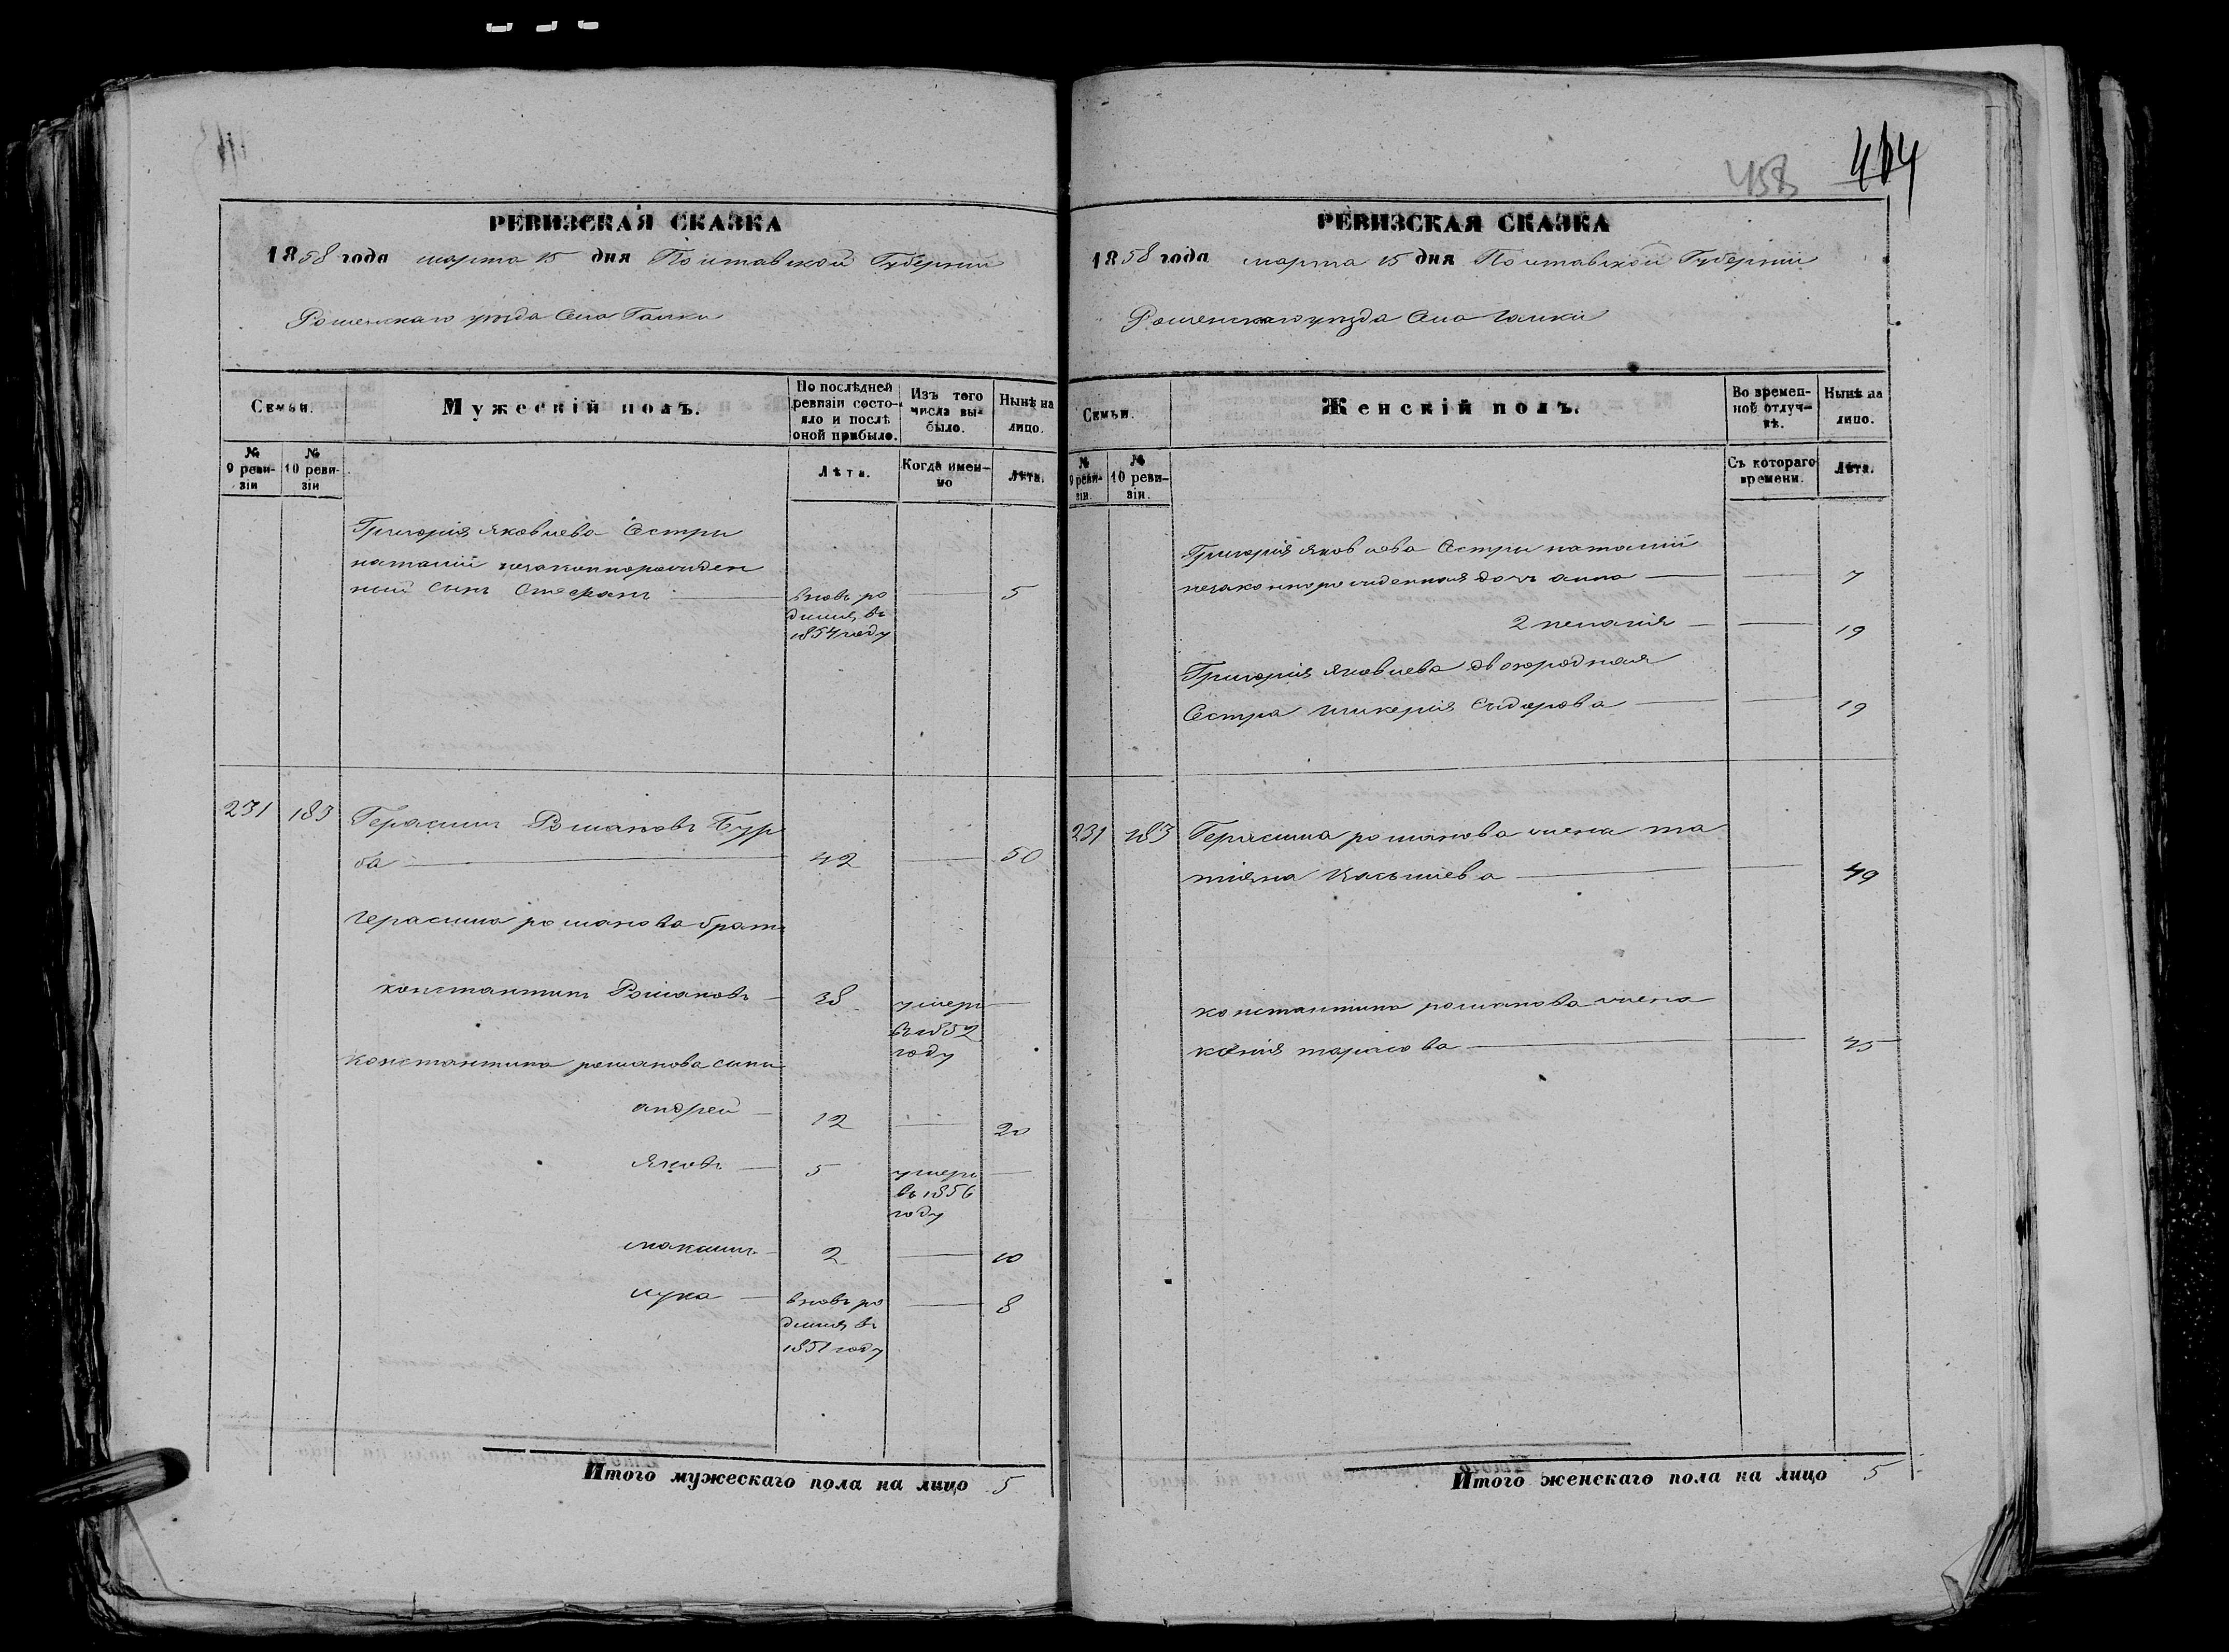 458 464
РЕВИЗСКАЯ СКАЗКА
1858 года марта 15 дня Полтавской Губернии
Роменскаго уезда Села Галки
Семьи.
Мужескій полъ.
По послѣдней ревизіи состояло и послѣ оной прибыло.
Изъ того числа выбыло.
Нынѣ на лицо.
№ 9 ревизіи
№ 10 ревизіи
Лѣта.
Когда именно
Лѣта.
Григорія Яковлева Сестры
наталіи незаконнорожден
ный сынъ Стефанъ вновь ро 5
дился въ
1854 году
231 183 Герасимъ Романовъ Бур
ба 42 50
Герасима романова братъ
константинъ Романовъ 38 умеръ
въ 1852
году
константина романова сыны
андрей 12 20
яковъ 5 умеръ
въ 1856
году
максимъ 2 10
лука вновь ро 8
дился въ
1851 году
Итого мужескаго пола на лицо 5
РЕВИЗСКАЯ СКАЗКА
1858 года марта 15 дня Полтавской Губернии
Роменскаго уезда Села Галки
Семьи.
Женскій полъ.
Во временной отлучкѣ.
Нынѣ на лицо.
№ 9 ревизіи.
№ 10 ревизіи.
Съ котораго времени.
Лѣта.
Григорія Яковлева Сестры наталіи
незаконнорожденная дочь анна 7
2 пелагія 19
Григорія Яковлева двоюродная
Сестра гликерія Сидорова 19
231 183 Герасима романова жена та
тияна 49
константина романова жена
ксенія тарасова 45
Итого женскаго пола на лицо 5